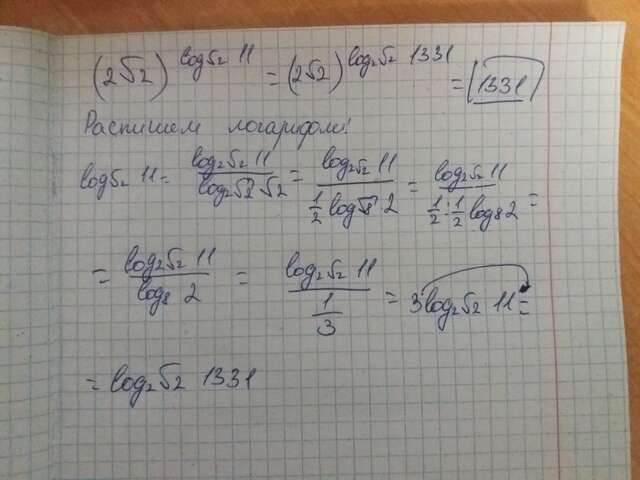 (2√2)^log√2 11 = (2√2)^log2√2 1331 = 1331
Распишем логарифом!
log√2 11 = log2√2 11 / log2√2 √2 = log2√2 11 / 1/2 log√8 2 = log2√2 11 / 1/2 : 1/2 log8 2 =
= log2√2 11 / log8 2 = log2√2 11 / 1/3 = 3log2√2 11 =
= log2√2 1331